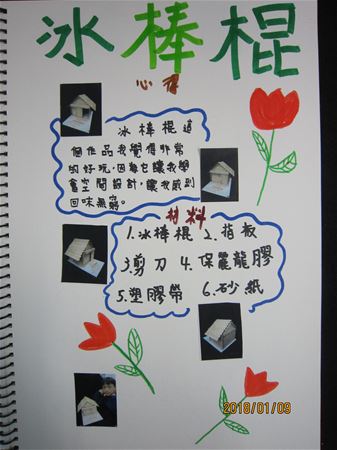 冰棒棍
心得
冰棒棍這
個作品我覺得非常
的好玩,因為它讓我學
會空間設計,讓我感到
回味無窮。
材料
1.冰棒棍 2.指板
3.剪刀 4.保麗龍膠
5.塑膠帶 6.砂紙
2018/01/09